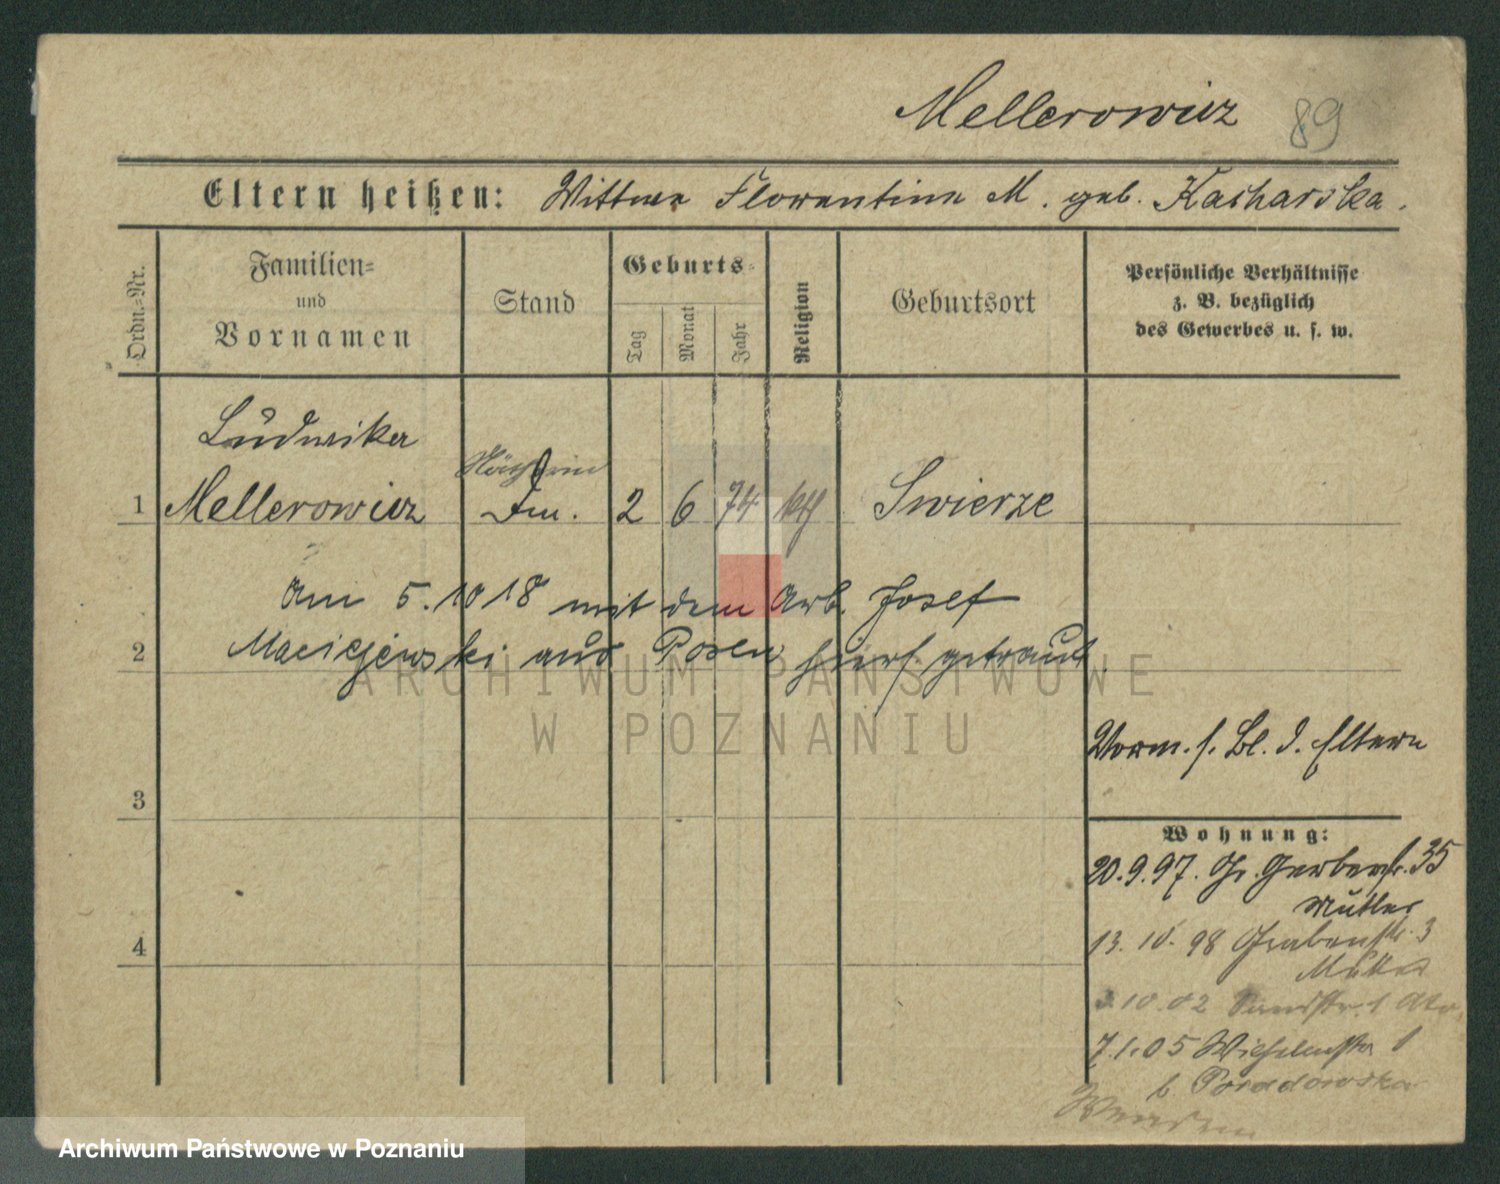 Mellerowicz 89
Eltern heißen: Wittwe Florentine M. geb. Kacharska.
Ordn.-Nr.
Familien-
und
Vornamen
Stand
Geburts-
Tag
Monat
Jahr
Religion
Geburtsort
Persönliche Verhältnisse
z. B. bezüglich
des Gewerbes u. s. w.
Ludwika
Näherin
1 Mellerowicz 2 6 74 kth Swierze
Am 5.10 18 mit dem Arb. Josef
2 Maciejewski aus Posen hier getraut.
ARCHIWUM PAŃSTWOWE
W POZNANIU
Vorm. s. Bl. d. Eltern
3
Wohnung:
20.9.97. Gr. Gerberstr. 35
Mutter
4
13. 10. 98 Grabenstr. 3
Mutter
3.10.02 Sandstr. 1
7.1.05 Wilhelmstr 1
b Poradowska
Wenden
Archiwum Państwowe w Poznaniu